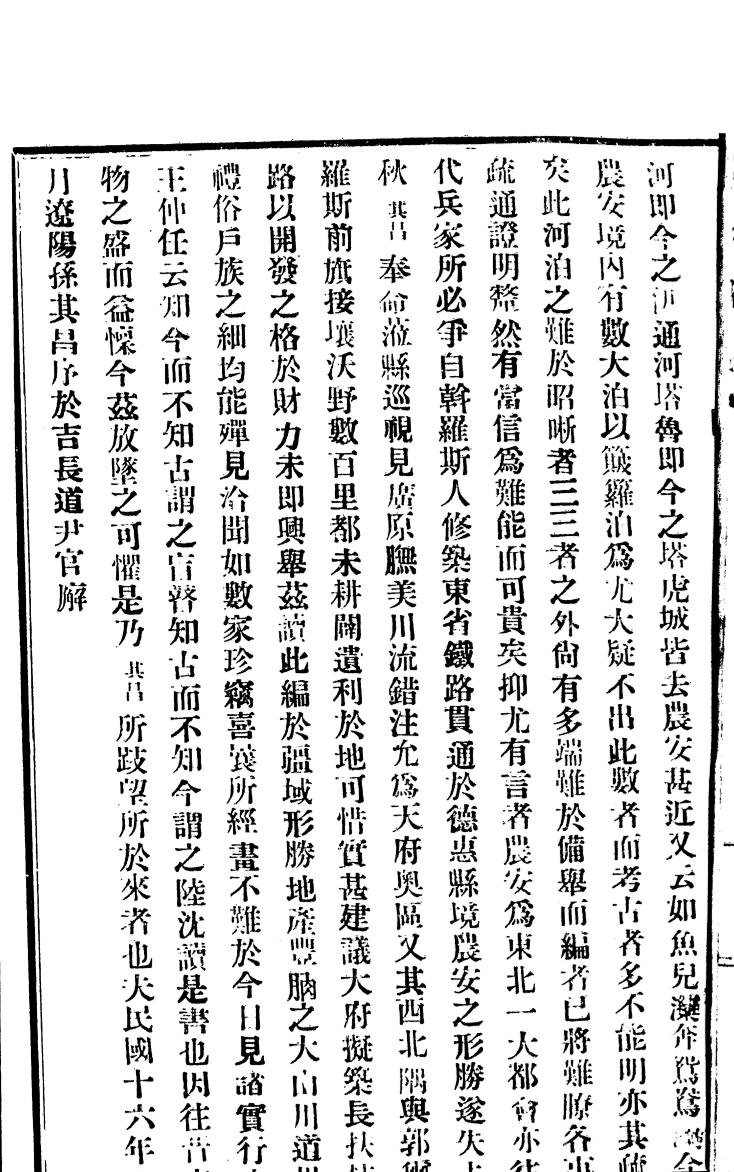 河即今之伊通河塔魯即今之塔虎城皆去農安甚近又云如魚兒濼奔鴛鴦濼今
農安境內有數大泊以簸籮泊為尤大疑不出此數者而考古者多不能明亦其疏
矣此河泊之難於昭晰者三三者之外尙有多端難於備舉而編者已將難瞭各事
疏通證明犂然有當信為難能而可貴矣抑尤有言者農安為東北一大都會亦往
代兵家所必爭自斡羅斯人修築東省鐵路貫通於德惠縣境農安之形勝遂失去
秋其昌奉命蒞縣巡視見廣原膴美川流錯注允為天府奧區又其西北隅與郭爾
羅斯前旗接壤沃野數百里都未耕闢遺利於地可惜實甚建議大府擬築長扶
路以開發之格於財力未即興舉茲讀此編於疆域形勝地產豐朒之大山川道
禮俗戶族之細均能殫見洽聞如數家珍竊喜曩所經畫不難於今日見諸實行
王仲任云知今而不知古謂之盲瞽知古而不知今謂之陸沈讀是書也因往昔
物之盛而益懍今茲放墜之可懼是乃其昌所跂望所於來者也夫民國十六年
月遼陽孫其昌序於吉長道尹官廨